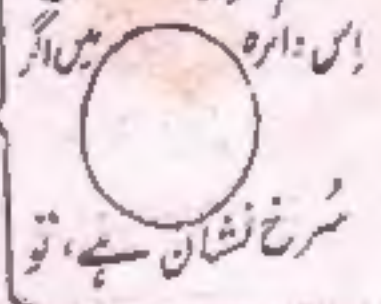 اِس دائرہ میں اگر
سُرخ نشان ہے، تو